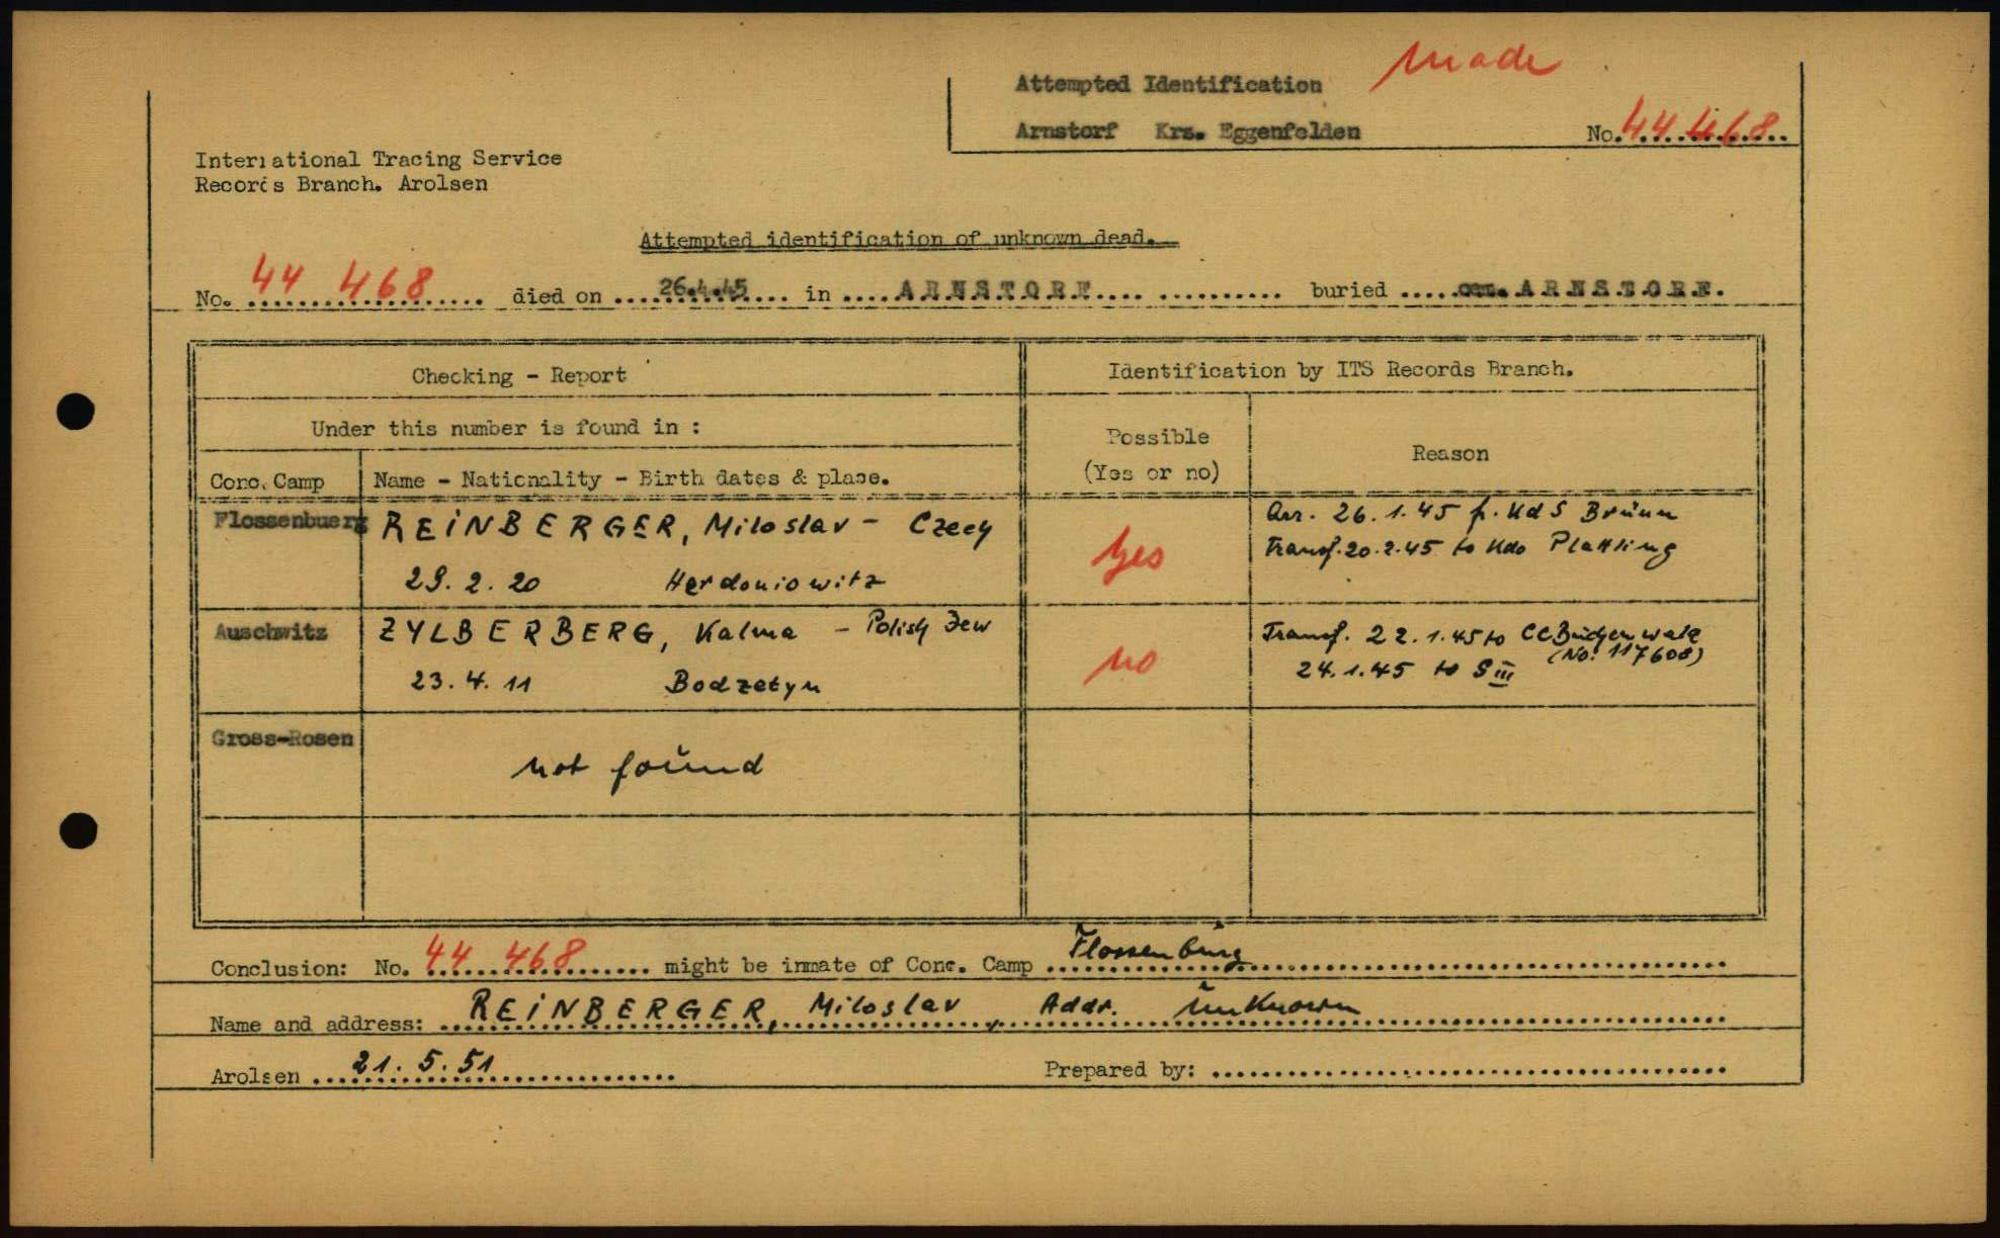 made
Attempted Identification
Arnstorf Krs. Eggenfelden No. 44 468
International Tracing Service
Records Branch. Arolsen
Attempted identification of unknown dead.
No. 44 468 died on 26.4.45 in ARNSTORF buried cem. ARNSTORF.
Checking - Report
Identification by ITS Records Branch.
Under this number is found in :
Possible
(Yes or no)
Reason
Conc. Camp Name - Nationality - Birth dates & place.
Flossenbuerg REINBERGER, Miloslav - Czech
29. 2. 20 Herdoniowitz
Yes
Arr. 26.1.45 f. KdS Brünn
Transf. 20.2.45 to Kdo Plattling
Auschwitz ZYLBERBERG, Kalma - Polish Jew
23. 4. 11 Bodzetyn
no
Transf. 22.1.45 to CC Buchenwald
(No. 117608)
24.1.45 to S III
Gross-Rosen
not found
Conclusion: No. 44 468 might be inmate of Conc. Camp Flossenbürg
Name and address: REINBERGER, Miloslav, Addr. unknown
Arolsen 21. 5. 51 Prepared by: